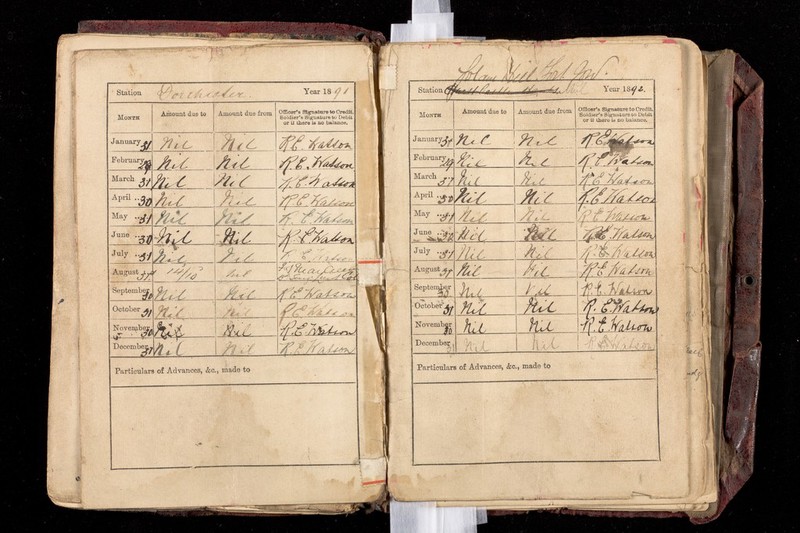 Station Dorchester Year 1891
MONTH Amount due to Amount due from Officer's Signature to Credit, Soldier's Signature to Debit or if there is no balance.
January 31 Nil Nil R.E. Watson
February 28 Nil Nil R.E. Watson
March 31 Nil Nil R.E. Watson
April 30 Nil Nil R.E. Watson
May 31 Nil Nil R.E. Watson
June 30 Nil Nil R.E. Watson
July 31 Nil Nil R.E. Watson
August 31 Nil
September 30 Nil Nil R.E. Watson
October 31 Nil Nil R.E. Watson
November 30 Nil Nil R.E. Watson
December 31 Nil Nil R.E. Watson
Particulars of Advances, &c., made to
Station Year 1892.
MONTH Amount due to Amount due from Officer's Signature to Credit, Soldier's Signature to Debit or if there is no balance.
January 31 Nil Nil R.E. Watson
February 29 Nil Nil R.E. Watson
March 31 Nil Nil R.E. Watson
April 30 Nil Nil R.E. Watson
May 31 Nil Nil R.E. Watson
June 30 Nil Nil R.E. Watson
July 31 Nil Nil R.E. Watson
August 31 Nil Nil R.E. Watson
September 30 Nil Nil R.E. Watson
October 31 Nil Nil R.E. Watson
November 30 Nil Nil R.E. Watson
December 31 Nil Nil R.E. Watson
Particulars of Advances, &c., made to